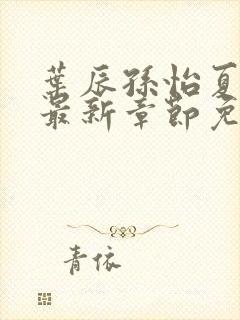 葉辰孫怡夏
最新章節免
青依